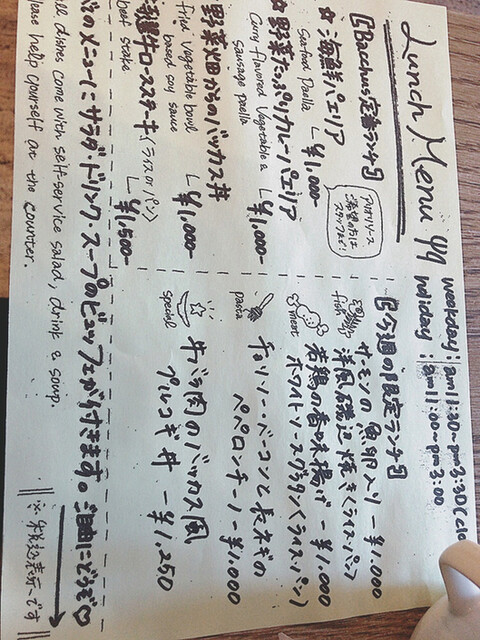 Lunch Menu
weekday: am11:30~pm3:30(clo
holiday: am11:00~pm3:00
【Bacchus定番ランチ】
☆海鮮パエリア
Seafood Paella
└¥1,000-
アリオリソース
ご希望の方は
スタッフまで!
☆野菜たっぷりカレーパエリア
Curry flavored Vegetable &
sausage paella
└¥1,000-
野菜畑からのバッカス丼
fried vegetable bowl
based soy sauce
└¥1,000-
牛ロースステーキ(ライス or パン)
beef steake
└¥1,500-
【今週の限定ランチ】
fish
サーモンの魚卵入り
洋風磯辺焼き(ライス・パン) -¥1.000
meat
若鶏の香味揚げ -¥1.000
ホワイトソースグラタン(ライス・パン)
pasta
チョリソーベーコンと長ネギの
ペペロンチーノ -¥1.000
special
牛バラ肉のバッカス風
プルコギ丼 -¥1.250
のメニューにサラダ・ドリンク・スープのビュッフェが付きます。ご自由にどうぞ♡
dishes come with self-service salad, drink & soup.
lease help yourself at the counter.
※税込表示です